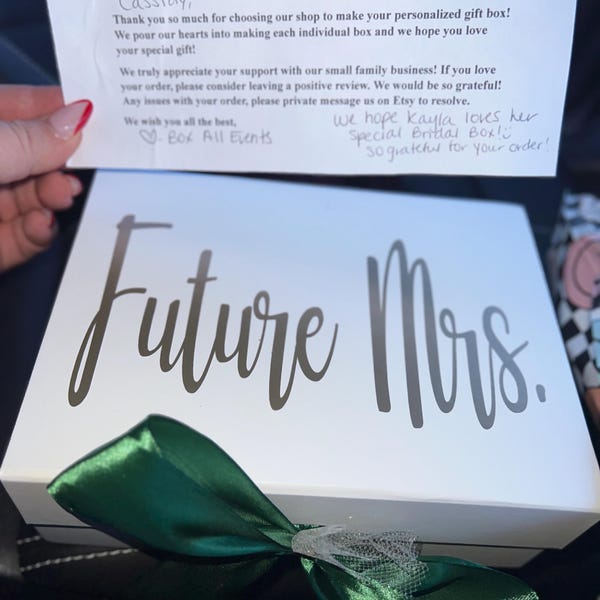 Cassidy,
Thank you so much for choosing our shop to make your personalized gift box!
We pour our hearts into making each individual box and we hope you love
your special gift!
We truly appreciate your support with our small family business! If you love
your order, please consider leaving a positive review. We would be so grateful!
Any issues with your order, please private message us on Etsy to resolve.
We wish you all the best,
♡- Box All Events
We hope Kayla loves her
special Bridal Box! :)
so grateful for your order!
Future Mrs.